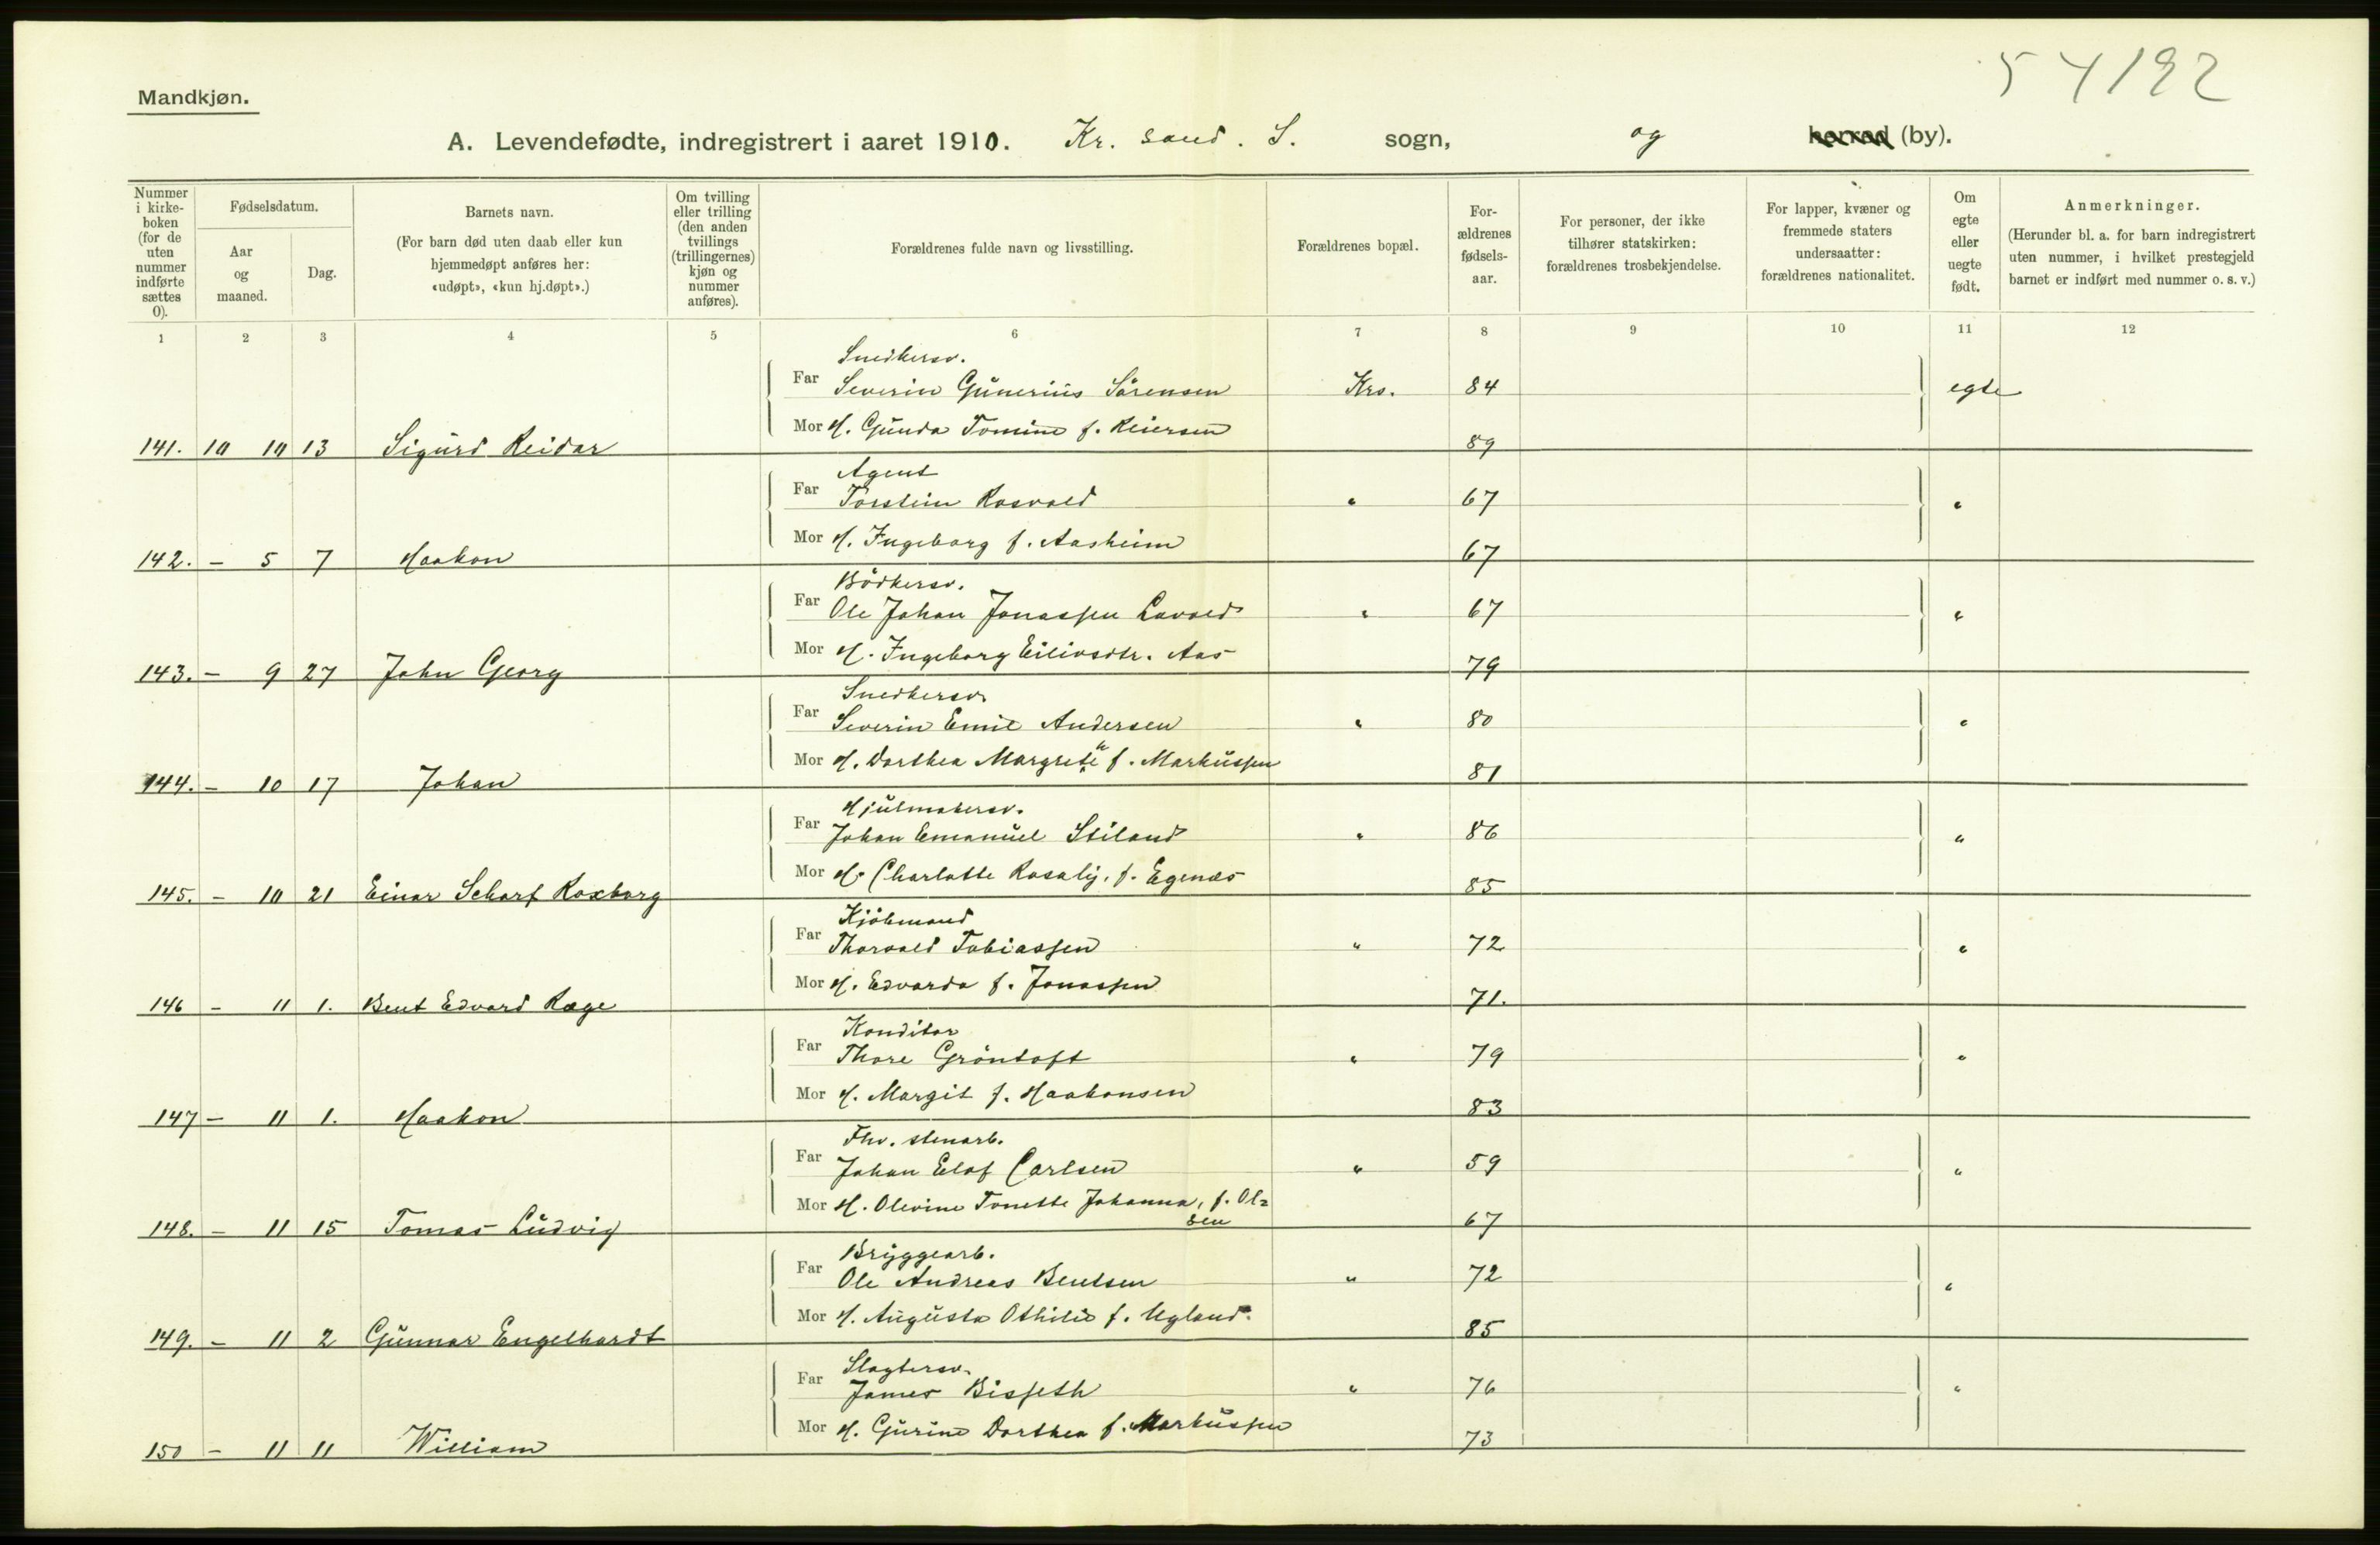 54/92
Mandkjøn.
A. Levendefødte, indregistrert i aaret 1910. Kr. sand. S. sogn, og herred (by).
Nummer i kirke-boken (for de uten nummer indførte sættes 0).
Fødselsdatum.
Aar og maaned.
Dag.
Barnets navn.
(For barn død uten daab eller kun hjemmedøpt anføres her: «udøpt», «kun hj.døpt».)
Om tvilling eller trilling (den anden tvillings (trillingernes) kjøn og nummer anføres).
Forældrenes fulde navn og livsstilling.
Forældrenes bopæl.
For-ældrenes fødsels-aar.
For personer, der ikke tilhører statskirken: forældrenes trosbekjendelse.
For lapper, kvæner og fremmede staters undersaatter: forældrenes nationalitet.
Om egte eller uegte født.
Anmerkninger.
(Herunder bl. a. for barn indregistrert uten nummer, i hvilket prestegjeld barnet er indført med nummer o. s. v.)
1 2 3 4 5 6 7 8 9 10 11 12
Snedkersv.
Far Severin Gunerius Sørensen Krs. 84 egte
Mor H. Gunda Tomine f. Reiersen 89
141. 10 10 13 Sigurd Reidar
Agent
Far Torstein Rosvold " 67 "
Mor H. Ingeborg f. Aasheim 67
142. - 5 7 Haakon
Bødkersv.
Far Ole Johan Jonassen Lavold " 67 "
Mor H. Ingeborg Eilivsdtr. Aas 79
143. - 9 27 John Georg
Snedkersv.
Far Severin Emil Andersen " 80 "
Mor H. Dorthea Margrete f. Markussen 81
144. - 10 17 Johan
Hjulmakersv.
Far Johan Emanuel Stiland " 86 "
Mor H. Charlotte Rosaly, f. Egenæs 85
145. - 10 21 Einar Scharf Roxborg
Kjøbmand
Far Thorvald Tobiassen " 72 "
Mor H. Edvarda f. Jonassen 71.
146 - 11 1. Bent Edvard Rage
Konditor
Far Thore Grøntoft " 79 "
Mor H. Margit f. Haakonsen 83
147 - 11 1. Haakon
Fhv. stenarb.
Far Johan Elof Carlsen " 59 "
Mor H. Olevine Tonette Johanna, f. Ol=
sen 67
148. - 11 15 Tomas Ludvig
Bryggearb.
Far Ole Andreas Bentsen " 72 "
Mor H. Augusta Othilie f. Ugland. 85
149. - 11 2 Gunnar Engelhardt
Slagtersv.
Far James Bisseth " 76 "
Mor H. Gurine Dorthea f. Markussen 73
150 - 11 11 William